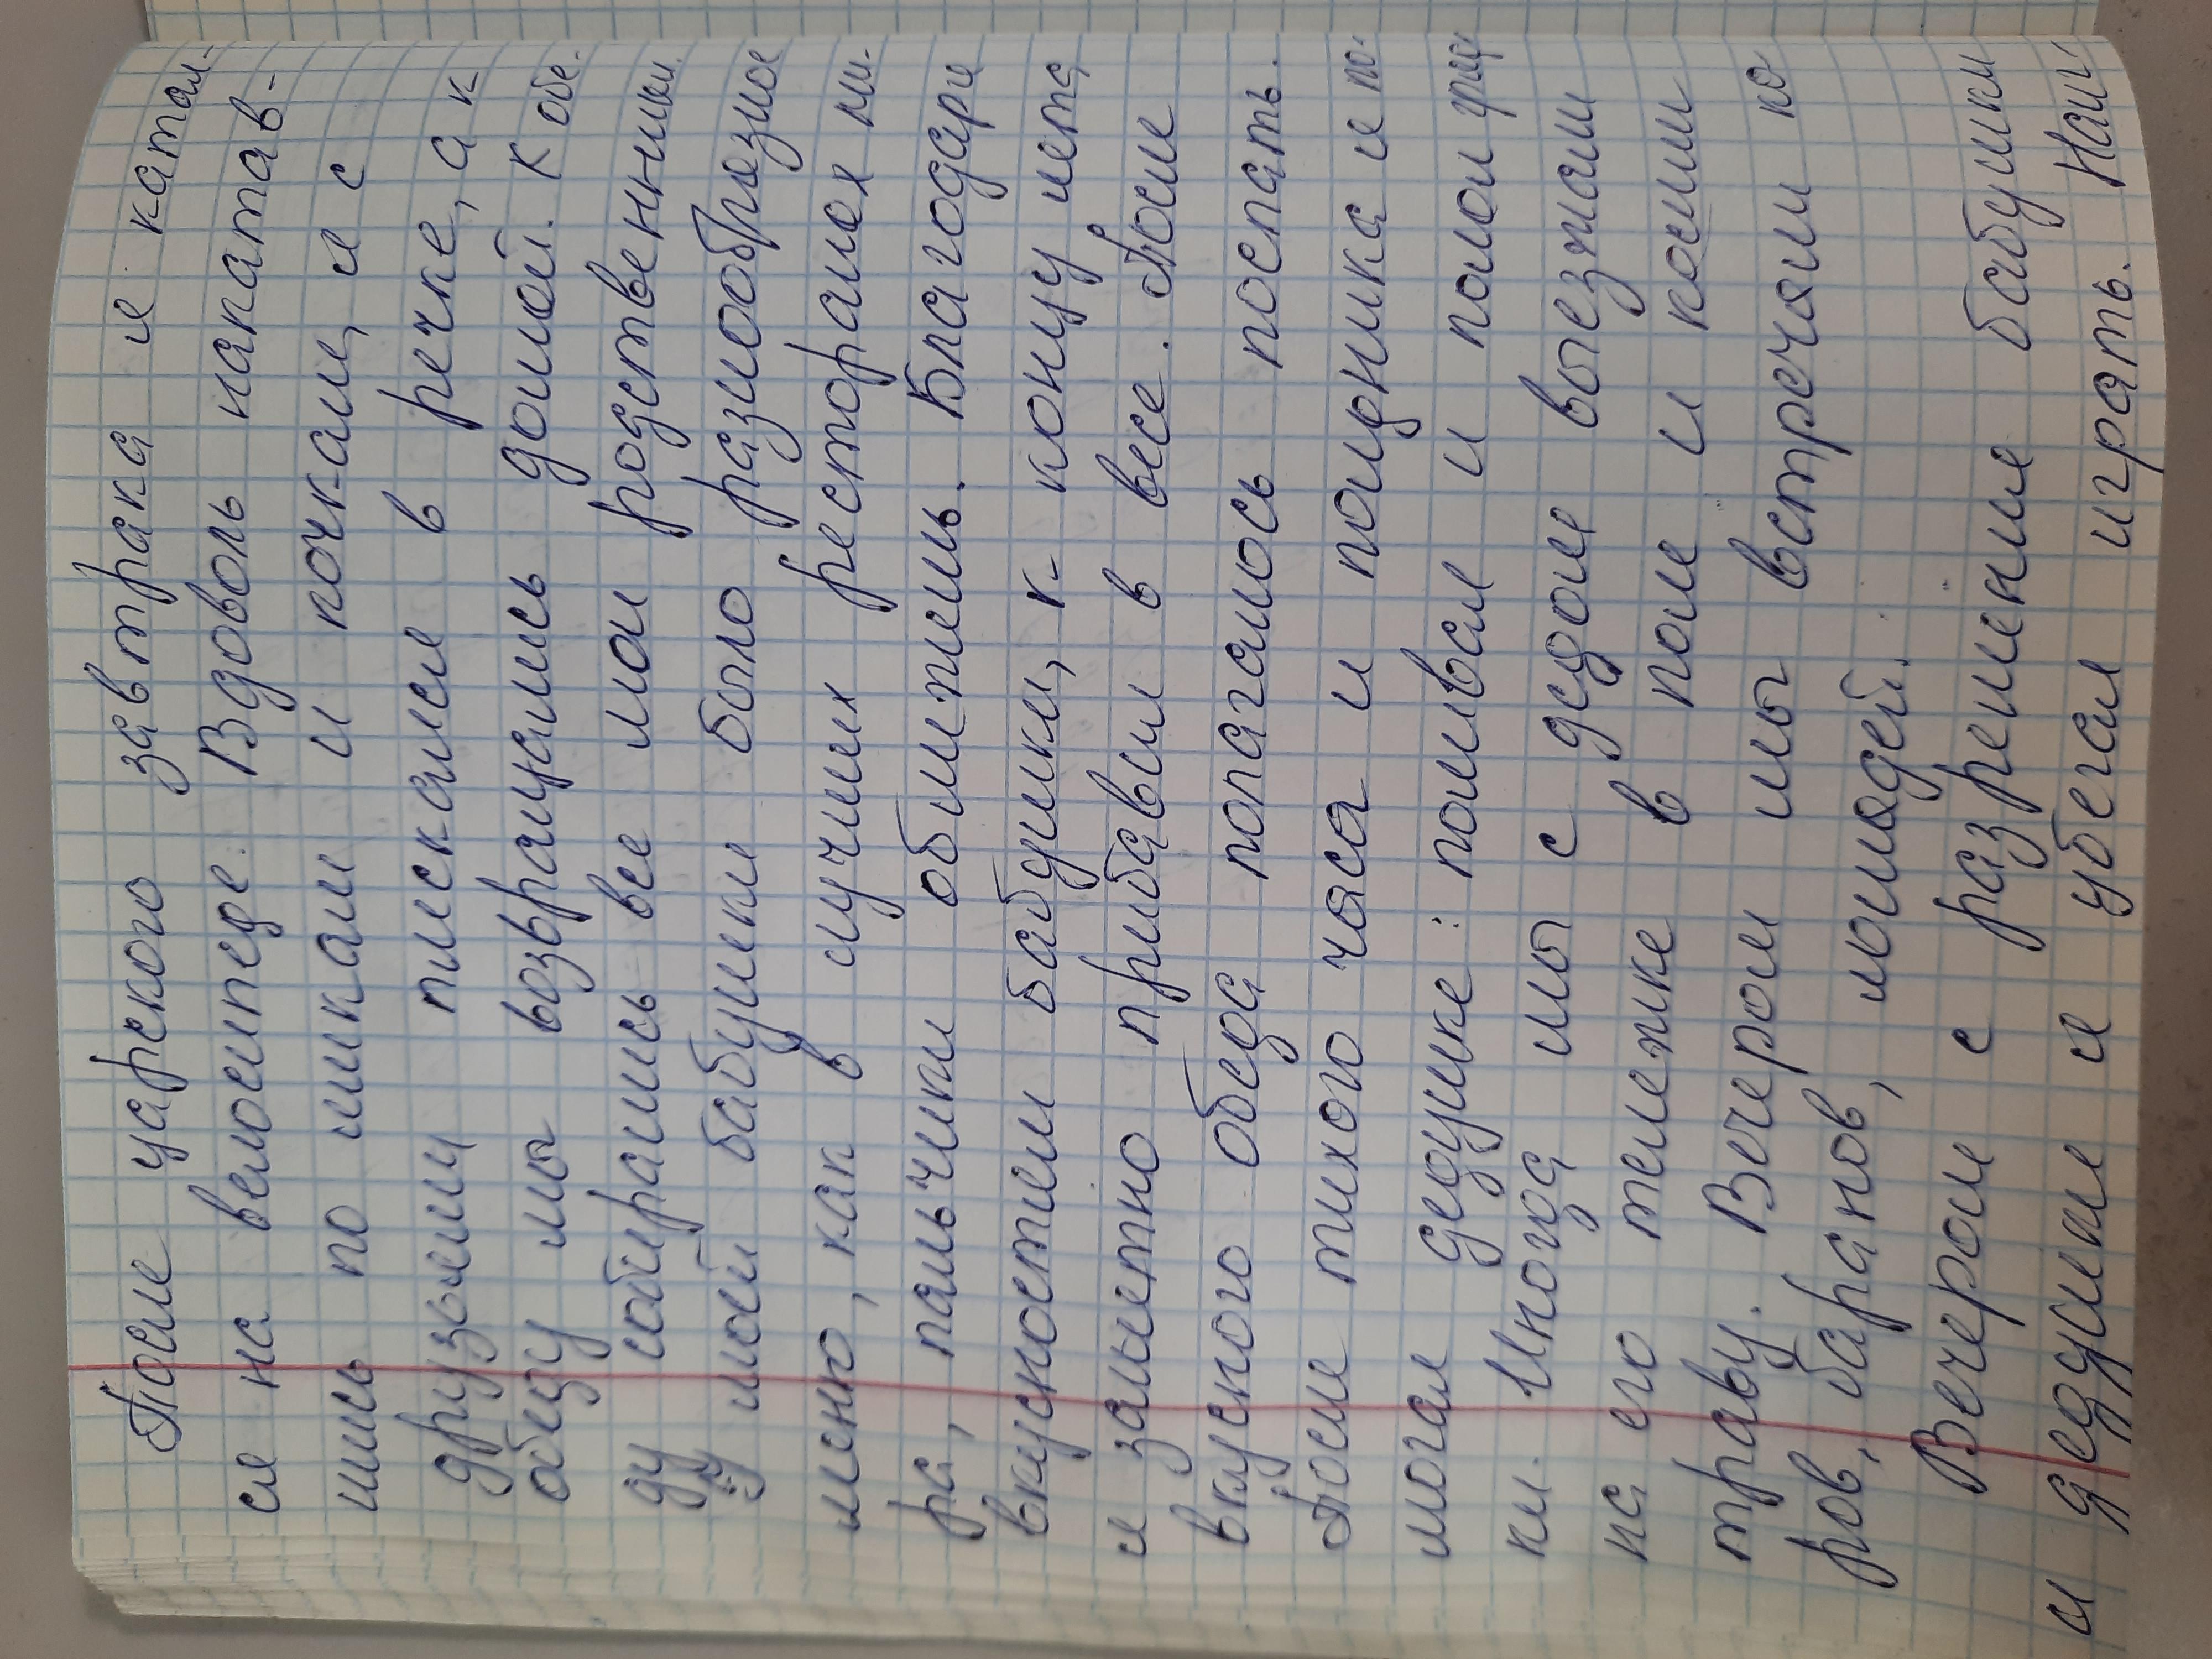 После царского завтрака я катал-
ся на велосипеде. Вдоволь накатав-
шись по пикам и кочкам, я с
друзьями плескался в речке, а к
обеду мы возвращались домой. К обе-
ду собирались все мои родственники.
У моей бабушки было разнообразное
меню, как в лучших ресторанах ми-
ра, пальчики оближешь. Благодаря
вкусностям бабушки, к концу лета
я заметно прибавил в весе. После
вкусного обеда полагалось поспать.
После тихого часа и полдника я по-
могал дедушке: поливал и полол гряд
ки. Иногда мы с дедом выезжали
на его тележке в поле и косили
траву. Вечером мы встречали ко
ров, баранов, лошадей.
Вечером с разрешения бабушки
и дедушки я убегал играть. Наши